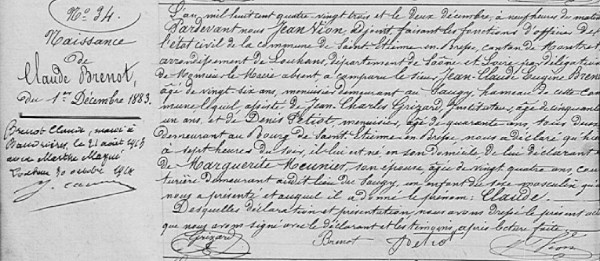 N° 34.
Naissance
de
Claude Brenot,
du 1er Décembre 1883.
Brenot Claude, marié à
le 21 août 1913
avec Marthe
30 octobre
L'an mil huit cent quatre vingt trois et le deux décembre, à neuf heures du matin
Pardevant nous Jean Vion, adjoint, faisant les fonctions d'officier de
l'état civil de la commune de Saint-Etienne en Bresse, canton de Montret
arrondissement de Louhans, département de Saône et Loire, par délégation
de Monsieur le Maire absent a comparu le sieur Jean-Claude Eugène Bren
âgé de vingt-six ans, menuisier demeurant au Saugy, hameau de cette com
mune, lequel assisté de Jean Charles Grizard, instituteur, âgé de cinquante
un ans, et de Denis Petiot menuisier, âgé de quarante ans, tous deux
demeurant au Bourg de Saint-Etienne en Bresse, nous a déclaré qu'hier
à sept heures du soir, il lui est né en son domicile de lui déclarant
de Marguerite Meunier, son épouse âgée de vingt quatre ans, cou
turière demeurant audit lieu de Saugy, un enfant du sexe masculin qu'il
nous a présenté et auquel il a donné le prénom: Claude.
Desquelles déclaration et présentation, nous avons dressé le présent acte
que nous avons signé avec le déclarant et les témoins, après lecture faite.
Grizard Brenot Petiot Vion